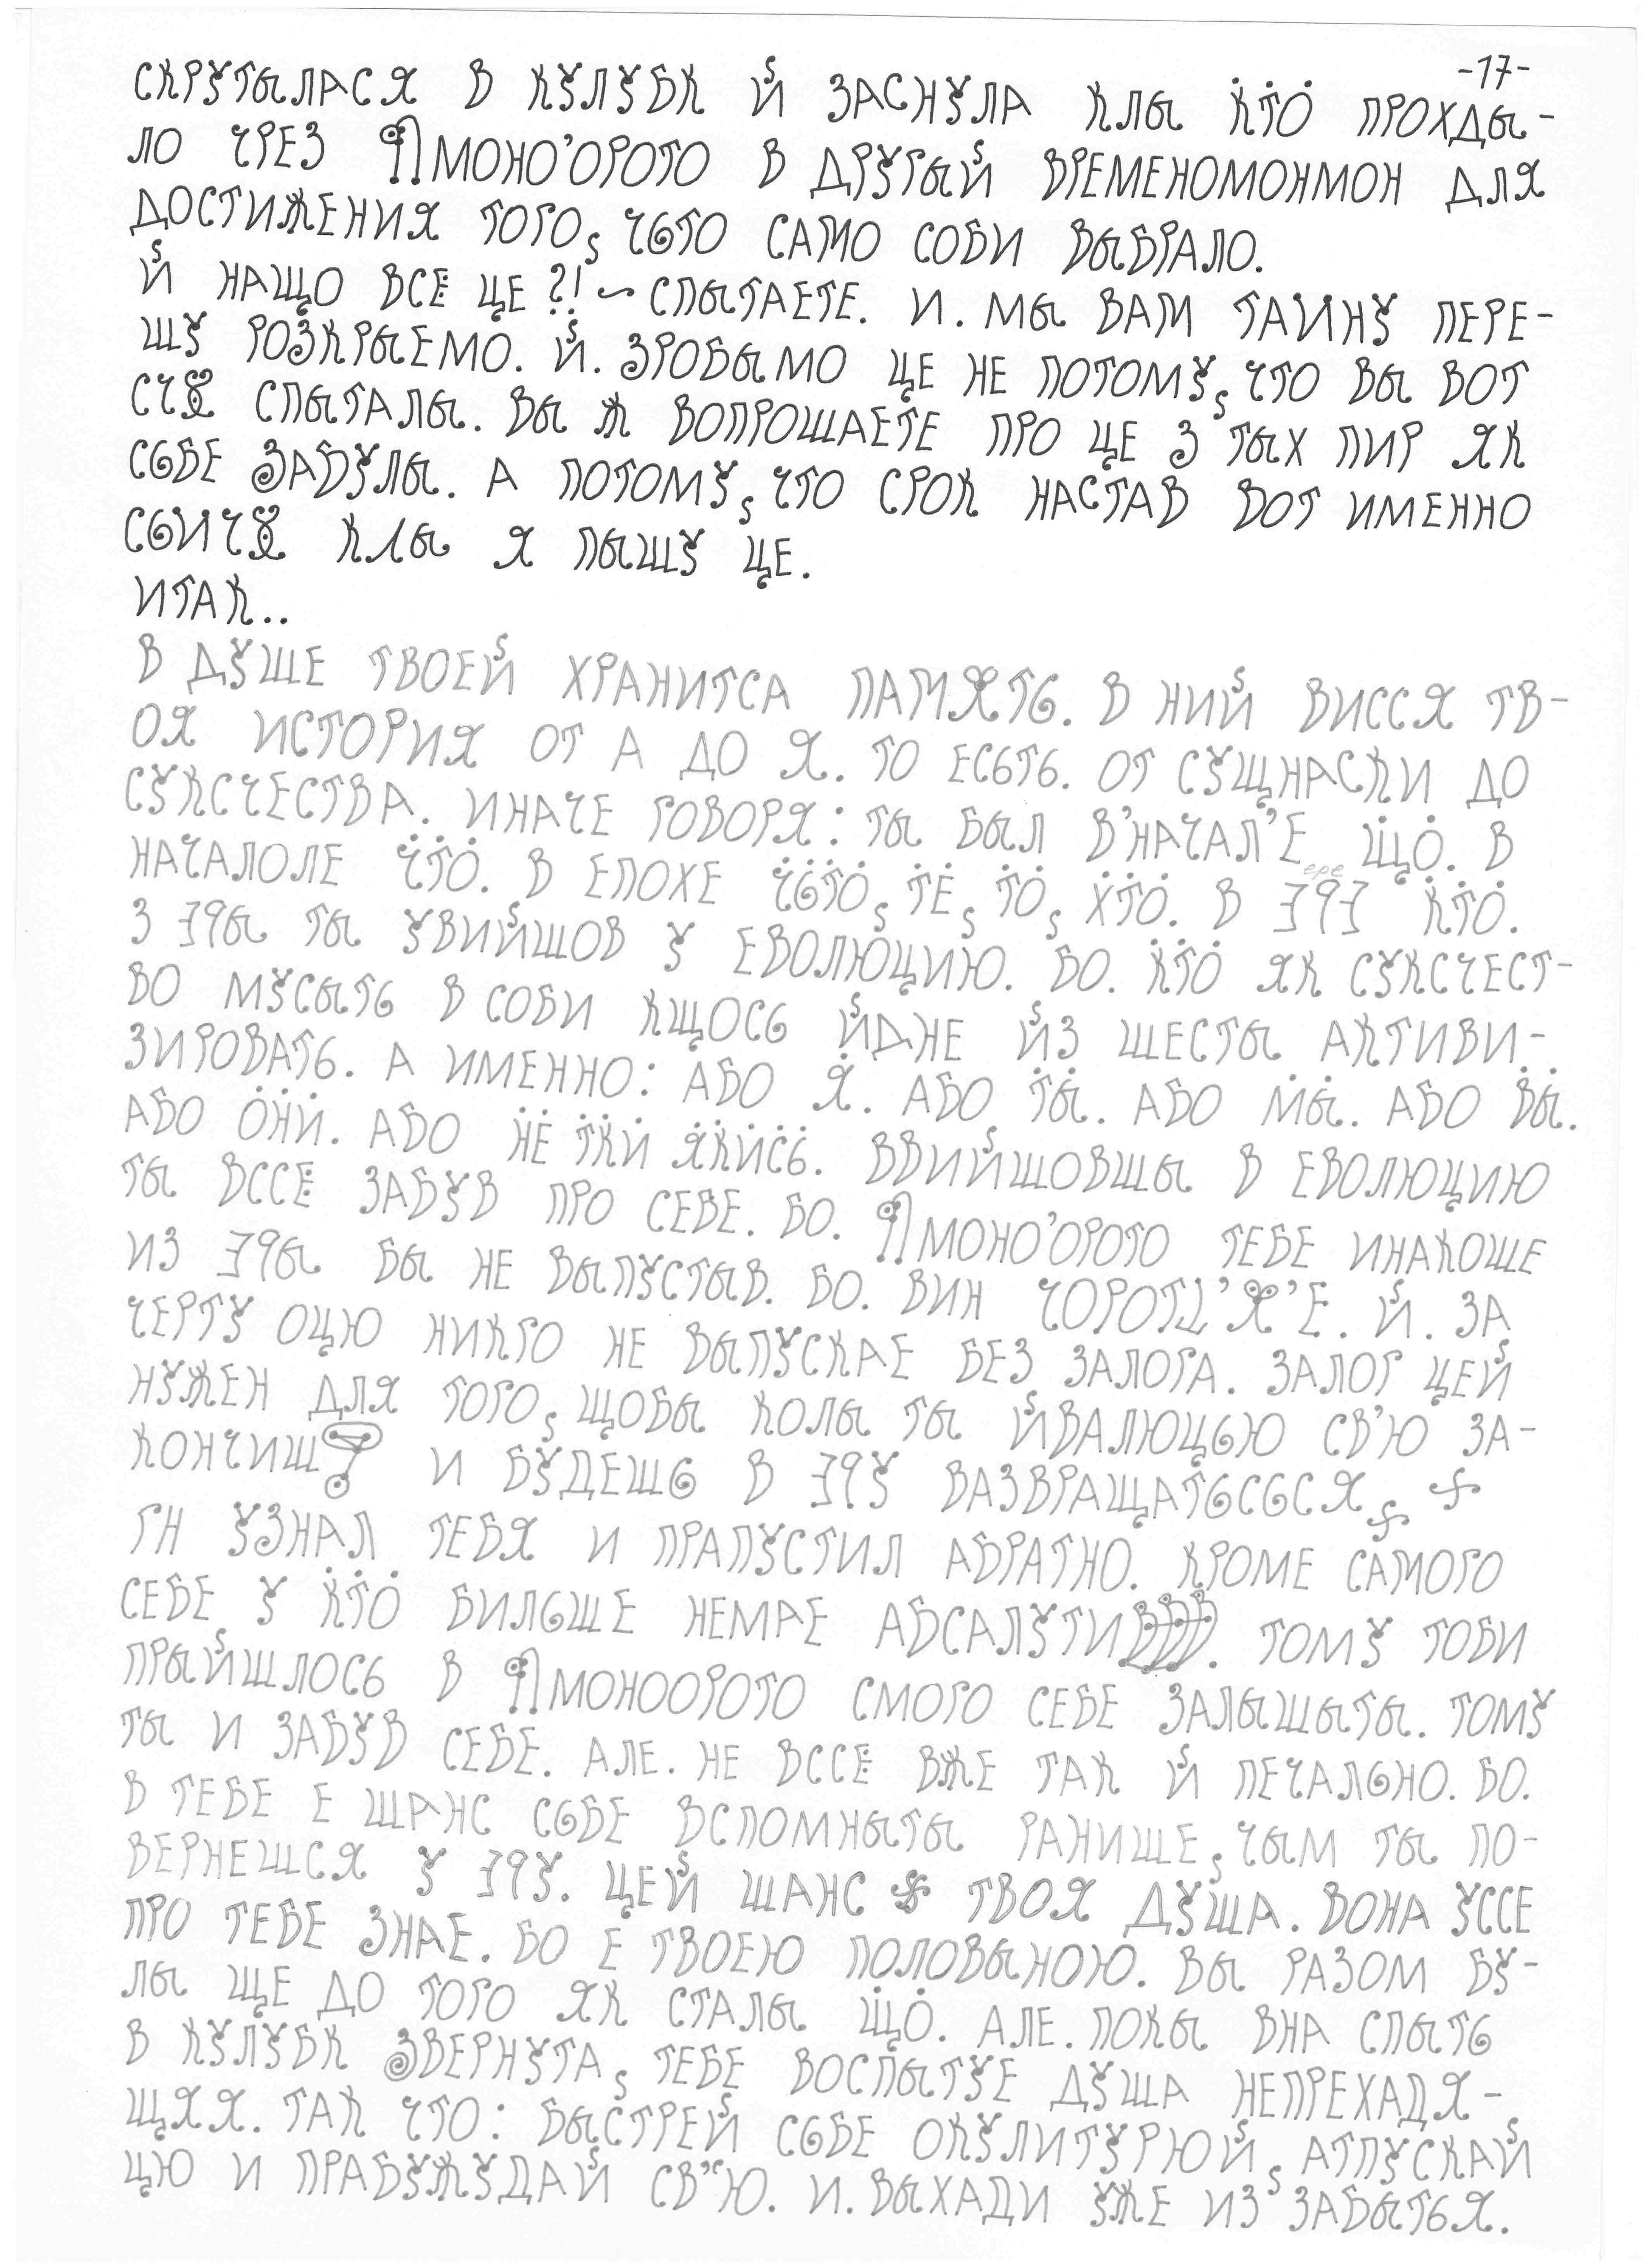 -17-
СКРУТЫЛАСЯ В КУЛУБК Й ЗАСНУЛА КЛЫ К̇Т̇О̇ ПРОХДЫ-
ЛО ЧРЕЗ МОНО'ОРОТО В ДРУГЫЙ ВРЕМЕНОМОНМОН ДЛЯ
ДОСТИЖЕНИЯ ТОГО, ЧЬТО САМО СОБИ ВЫБРАЛО.
Й НАЩО ВСЕ ЦЕ?! ~ СПЫТАЕТЕ. И. МЫ ВАМ ТАИНУ ПЕРЕ-
ШУ РОЗКРЫЕМО. Й. ЗРОБЫМО ЦЕ НЕ ПОТОМУ, ЧТО ВЫ ВОТ
СПЫТАЛЫ. ВЫ Ж ВОПРОШАЕТЕ ПРО ЦЕ З ТЫХ ПИР ЯК
СЬБЕ ЗАБУЛЫ. А ПОТОМУ, ЧТО СРОК НАСТАВ ВОТ ИМЕННО
КЛЫ Я ПЫШУ ЦЕ.
ИТАК..
В ДУШЕ ТВОЕЙ ХРАНИТСА ПАМЯТЬ. В НИЙ ВИССЯ ТВ-
ОЯ ИСТОРИЯ ОТ А ДО Я. ТО ЕСЬТЬ. ОТ СУЩНАСКИ ДО
СУКСЧЕСТВА. ИНАЧЕ ГОВОРЯ: ТЫ БЫЛ В'НАЧАЛ'Е Щ̇О̇. В
НАЧАЛОЛЕ Ч̇Т̇О̇. В ЕПОХЕ ӴЬ̈Т̈Ӧ, Т̈Ё, Т̈Ӧ, Х̇Т̇О̇. В ƎЯƎ К̇Т̇О̇.
ере
З ƎЯЫ ТЫ УВИЙШОВ У ЕВОЛЮЦИЮ. БО. К̇Т̇О̇ ЯК СУКСЧЕСТ-
ВО МУСЫТЬ В СОБИ КЩОСЬ ЙДНЕ ЙЗ ШЕСТЫ АКТИВИ-
ЗИРОВАТЬ. А ИМЕННО: АБО Я̇. АБО Т̇Ы̇. АБО М̇Ы̇. АБО В̇Ы̇.
АБО О̇Н̇И̇. АБО Н̈Ё Т̈К̈И̇ Я̈К̈И̇С̈Ь̈. ВВИЙШОВШЫ В ЕВОЛЮЦИЮ
ТЫ ВССЕ ЗАБУВ ПРО СЕБЕ. БО. МОНО'ОРОТО ТЕБЕ ИНАКОШЕ
ИЗ ƎЯЫ БЫ НЕ ВЫПУСТЫВ. БО. ВИН ЧОРОТТ'Я'Е. Й. ЗА
ЧЕРТУ ОЦЮ НИКГО НЕ ВЫПУСКАЕ БЕЗ ЗАЛОГА. ЗАЛОГ ЦЕЙ
НУЖЕН ДЛЯ ТОГО, ЩОБЫ КОЛЫ ТЫ ЙВАЛЮЦЬЮ СВ'Ю ЗА-
КОНЧИШ И БУДЕШЬ В ƎЯУ ВАЗВРАЩАТЬСЬСЯ,
ГН УЗНАЛ ТЕБЯ И ПРАПУСТИЛ АБРАТНО. КРОМЕ САМОГО
СЕБЕ У К̇Т̇О̇ БИЛЬШЕ НЕМАЕ АБСАЛУТИВВВ. ТОМУ ТОБИ
ПРЫЙШЛОСЬ В МОНООРОТО СМОГО СЕБЕ ЗАЛЫШЫТЫ. ТОМУ
ТЫ И ЗАБУВ СЕБЕ. АЛЕ. НЕ ВССЕ ВЖЕ ТАК Й ПЕЧАЛЬНО. БО.
В ТЕБЕ Е ШАНС СЬБЕ ВСПОМНЫТЫ РАНИШЕ, ЧЫМ ТЫ ПО-
ВЕРНЕШСЯ У ƎЯУ. ЦЕЙ ШАНС ТВОЯ ДУША. ВОНА УССЕ
ПРО ТЕБЕ ЗНАЕ. БО Е ТВОЕЮ ПОЛОВЫНОЮ. ВЫ РАЗОМ БУ-
ЛЫ ЩЕ ДО ТОГО ЯК СТАЛЫ Щ̇О̇. АЛЕ. ПОКЫ ВНА СПЫТЬ
В КУЛУБК ЗВЕРНУТА, ТЕБЕ ВОСПЫТУЕ ДУША НЕПРЕХАДЯ-
ЩЯЯ. ТАК ЧТО: БЫСТРЕЙ СЬБЕ ОКУЛИТУРЮЙ, АТПУСКАЙ
ЦЮ И ПРАБУЖУДАЙ СВ"Ю. И. ВЫХАДИ УЖЕ ИЗ ЗАБЫТЬЯ.